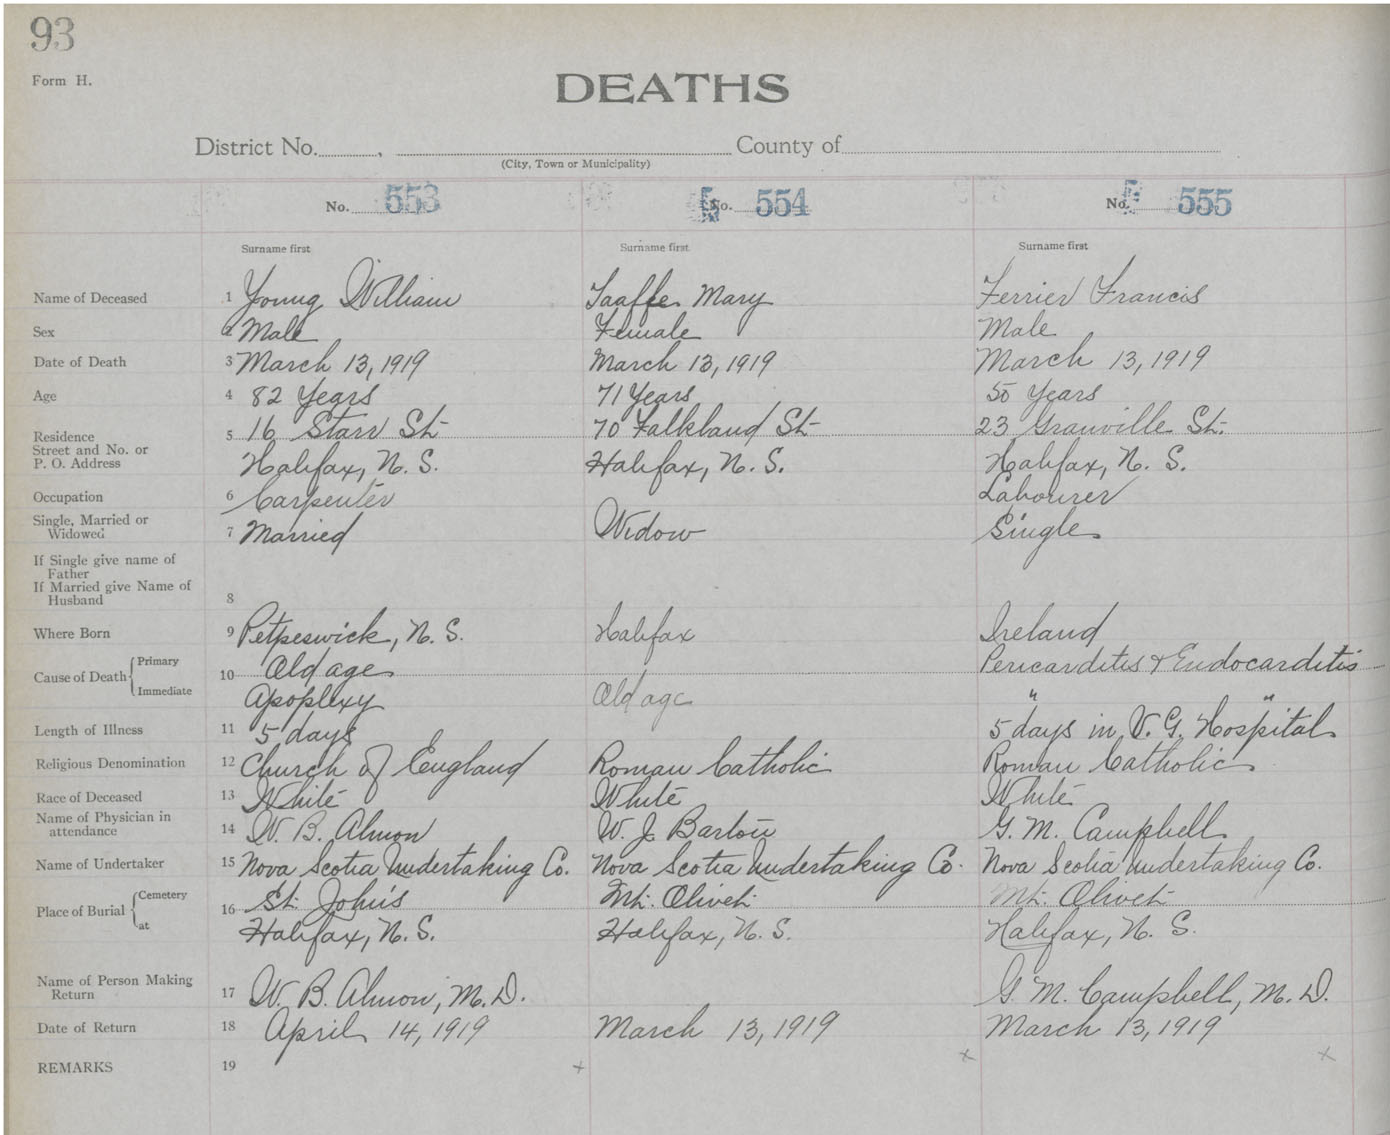 93
Form H.
DEATHS
District No. , County of
(City, Town or Municipality)
No. 553 No. 554 No. 555
Surname first Surname first Surname first
Name of Deceased 1 Young William Taaffe Mary Ferrier Francis
Sex 2 Male Female Male
Date of Death 3 March 13, 1919 March 13, 1919 March 13, 1919
Age 4 82 Years 71 Years 50 Years
Residence Street and No. or P. O. Address 5 16 Starr St. 70 Falkland St. 23 Granville St.
Halifax, N. S. Halifax, N. S. Halifax, N. S.
Occupation 6 Carpenter Labourer
Single, Married or Widowed 7 Married Widow Single
If Single give name of Father
If Married give Name of Husband 8
Where Born 9 Petpeswick, N. S. Halifax Ireland
Cause of Death { Primary 10 Old age Pericarditis & Endocarditis
Immediate Apoplexy Old age " "
Length of Illness 11 5 days 5 days in V. G. Hospital
Religious Denomination 12 Church of England Roman Catholic Roman Catholic
Race of Deceased 13 White White White
Name of Physician in attendance 14 W. B. Almon W. J. Barton G. M. Campbell
Name of Undertaker 15 Nova Scotia Undertaking Co. Nova Scotia Undertaking Co. Nova Scotia Undertaking Co.
Place of Burial { Cemetery 16 St. John's Mt. Olivet Mt. Olivet
at Halifax, N. S. Halifax, N. S. Halifax, N. S.
Name of Person Making Return 17 W. B. Almon, M. D. G. M. Campbell, M. D.
Date of Return 18 April 14, 1919 March 13, 1919 March 13, 1919
REMARKS 19 x x x